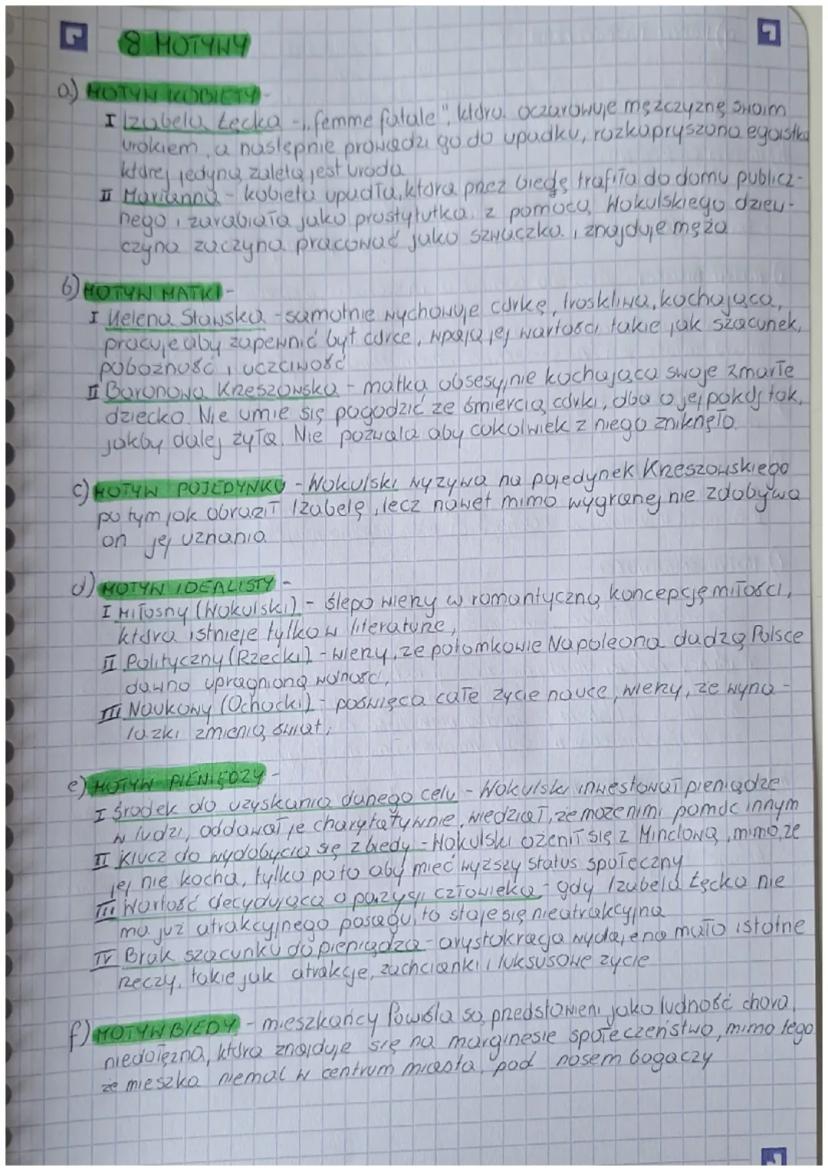 8 MOTYWY
a) MOTYW KOBIETY -
I Izabela Łęcka - „femme fatale", która oczarowuje mężczyznę swoim
urokiem, a następnie prowadzi go do upadku, rozkapryszona egoistka
której jedyną zaletą jest uroda
II Marianna - kobieta upadła, która przez biedę trafiła do domu publicz-
nego i zarabiała jako prostytutka. z pomocą Wokulskiego dziew-
czyna zaczyna pracować jako szwaczka i znajduje męża
b) MOTYW MATKI -
I Helena Stawska - samotnie wychowuje córkę, troskliwa, kochająca,
pracuje aby zapewnić byt córce, wpaja jej wartości takie jak szacunek,
pobożność i uczciwość
II Baronowa Krzeszowska - matka obsesyjnie kochająca swoje zmarłe
dziecko. Nie umie się pogodzić ze śmiercią córki, dba o jej pokój tak,
jakby dalej żyła. Nie pozwala aby cokolwiek z niego zniknęło.
c) MOTYW POJEDYNKU - Wokulski wyzywa na pojedynek Krzeszowskiego
po tym jak obraził Izabelę, lecz nawet mimo wygranej nie zdobywa
on jej uznania
d) MOTYW IDEALISTY -
I Miłosny (Wokulski) - ślepo wierzy w romantyczną koncepcję miłości,
która istnieje tylko w literaturze,
II Polityczny (Rzecki) - wierzy, że potomkowie Napoleona dadzą Polsce
dawno upragnioną wolność,
III Naukowy (Ochocki) - poświęca całe życie nauce, wierzy, że wyna-
lazki zmienią świat,
e) MOTYW PIENIĘDZY -
I środek do uzyskania danego celu - Wokulski inwestował pieniądze
w ludzi, oddawał je charytatywnie, wiedział, że może nimi pomóc innym
II Klucz do wydobycia się z biedy - Wokulski ożenił się z Minclową, mimo, że
jej nie kocha, tylko po to aby mieć wyższy status społeczny
III Wartość decydująca o pozycji człowieka - gdy Izabela Łęcka nie
ma już atrakcyjnego posagu, to staje się nieatrakcyjna
IV Brak szacunku do pieniądza - arystokracja wydaje na mało istotne
rzeczy, takie jak atrakcje, zachcianki i luksusowe życie
f) MOTYW BIEDY - mieszkańcy Powiśla są przedstawieni jako ludność chora,
niedołężna, która znajduje się na marginesie społeczeństwa, mimo tego
że mieszka niemal w centrum miasta, pod nosem bogaczy